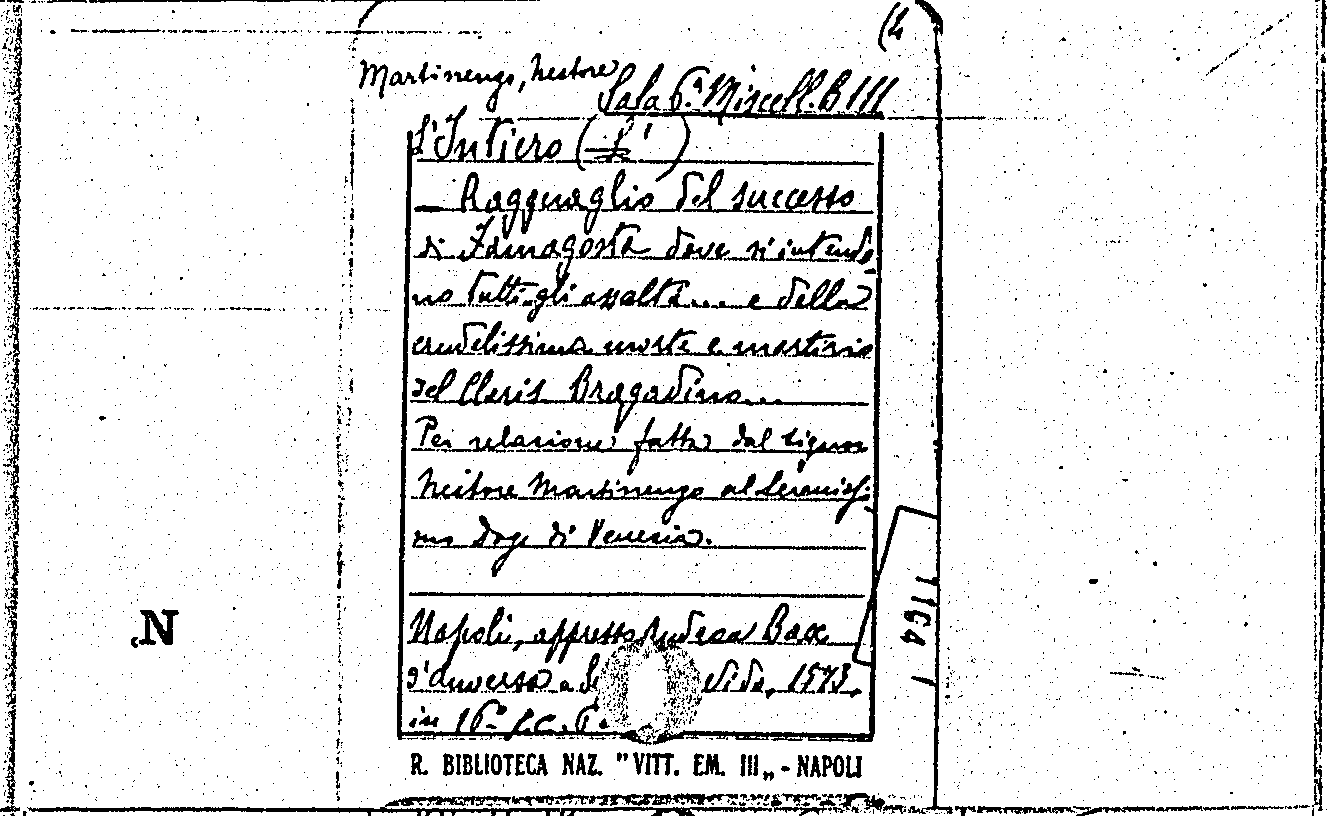 (4
Martinengo, Nestore
Sala 6.ª Miscell. B III
L'Intiero (L')
— Ragguaglio del successo
di Famagosta dove si intendo-
no tutti gli assalti... e della
crudelissima morte e martirio
del Claris Bragadino...
Per relatione fatta dal signor
Nestore Martinengo al Serenissi-
mo Doge di Venezia.
Napoli, appresso Andrea Bax
d'Anversa a 1573.
in 16º
N
R. BIBLIOTECA NAZ. "VITT. EM. III„ - NAPOLI